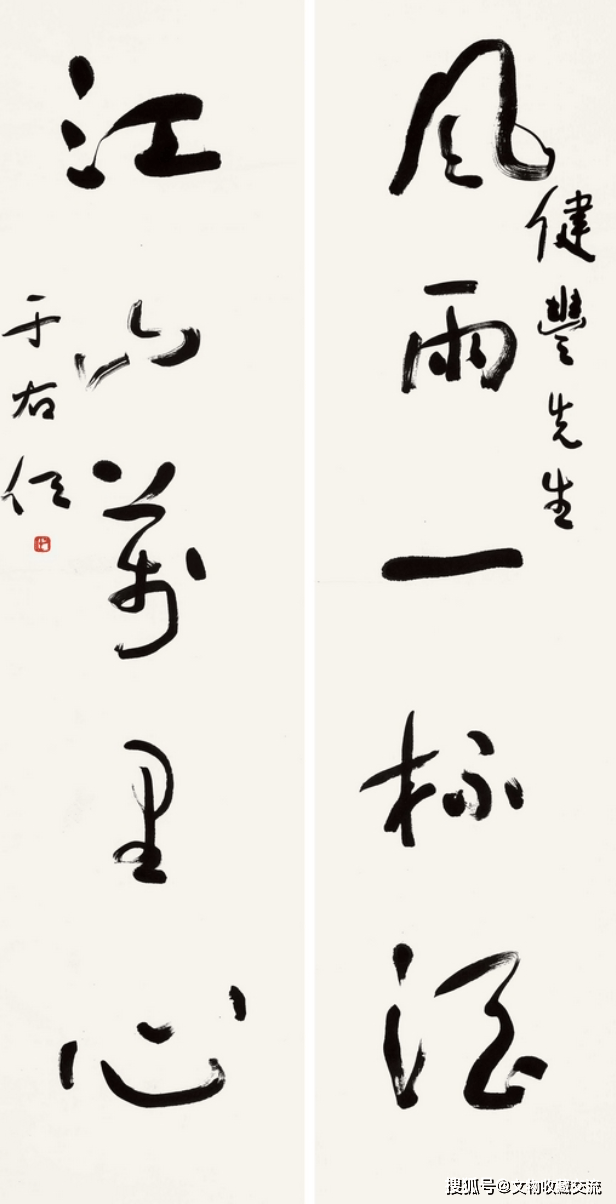 健豐先生
風雨一杯酒
江山萬里心
于右任
搜狐号@文物收藏交流